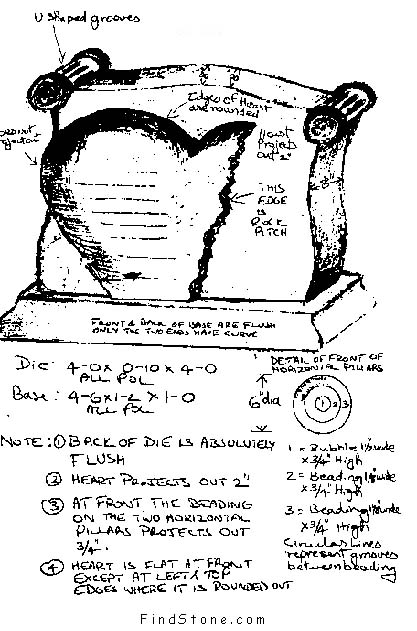 U shaped grooves
Edges of Heart
are rounded
Heart
Projects
out 2"
THIS
EDGE
IS
ROCK
PITCH
FRONT & BACK OF BASE ARE FLUSH
ONLY THE TWO ENDS HAVE CURVE
Die: 4-0 x 0-10 x 4-0
ALL POL
Base: 4-6 x 1-2 x 1-0
ALL POL
DETAIL OF FRONT OF
HORIZONTAL PILLARS
6" dia
1 2 3
NOTE: ① BACK OF DIE IS ABSOLUTELY
FLUSH
② HEART PROJECTS OUT 2"
③ AT FRONT THE BEADING
ON THE TWO HORIZONTAL
PILLARS PROJECTS OUT
3/4".
④ HEART IS FLAT AT FRONT
EXCEPT AT LEFT & TOP
EDGES WHERE IT IS ROUNDED OUT
1 = Bubble wide
x 3/4" High
2 = Beading wide
x 3/4" High
3 = Beading wide
x 3/4" High
Circular lines
represent grooves
between beading
FindStone.com